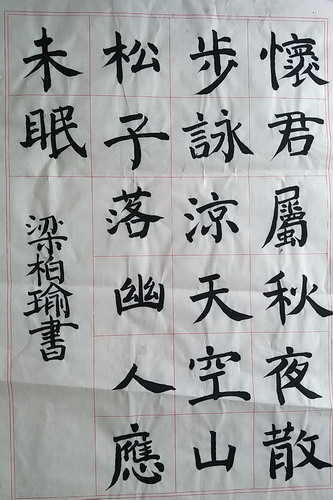 懷君屬秋夜散
步詠涼天空山
松子落幽人應
未眠
梁柏瑜書